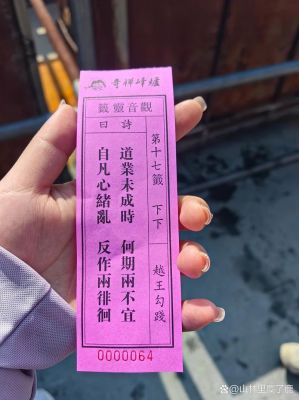 爐峰禪寺
觀音靈籤
第十七籤 下下 越王勾踐
詩曰
道業未成時 何期兩不宜
自凡心緒亂 反作兩徘徊
0000064
@山林里